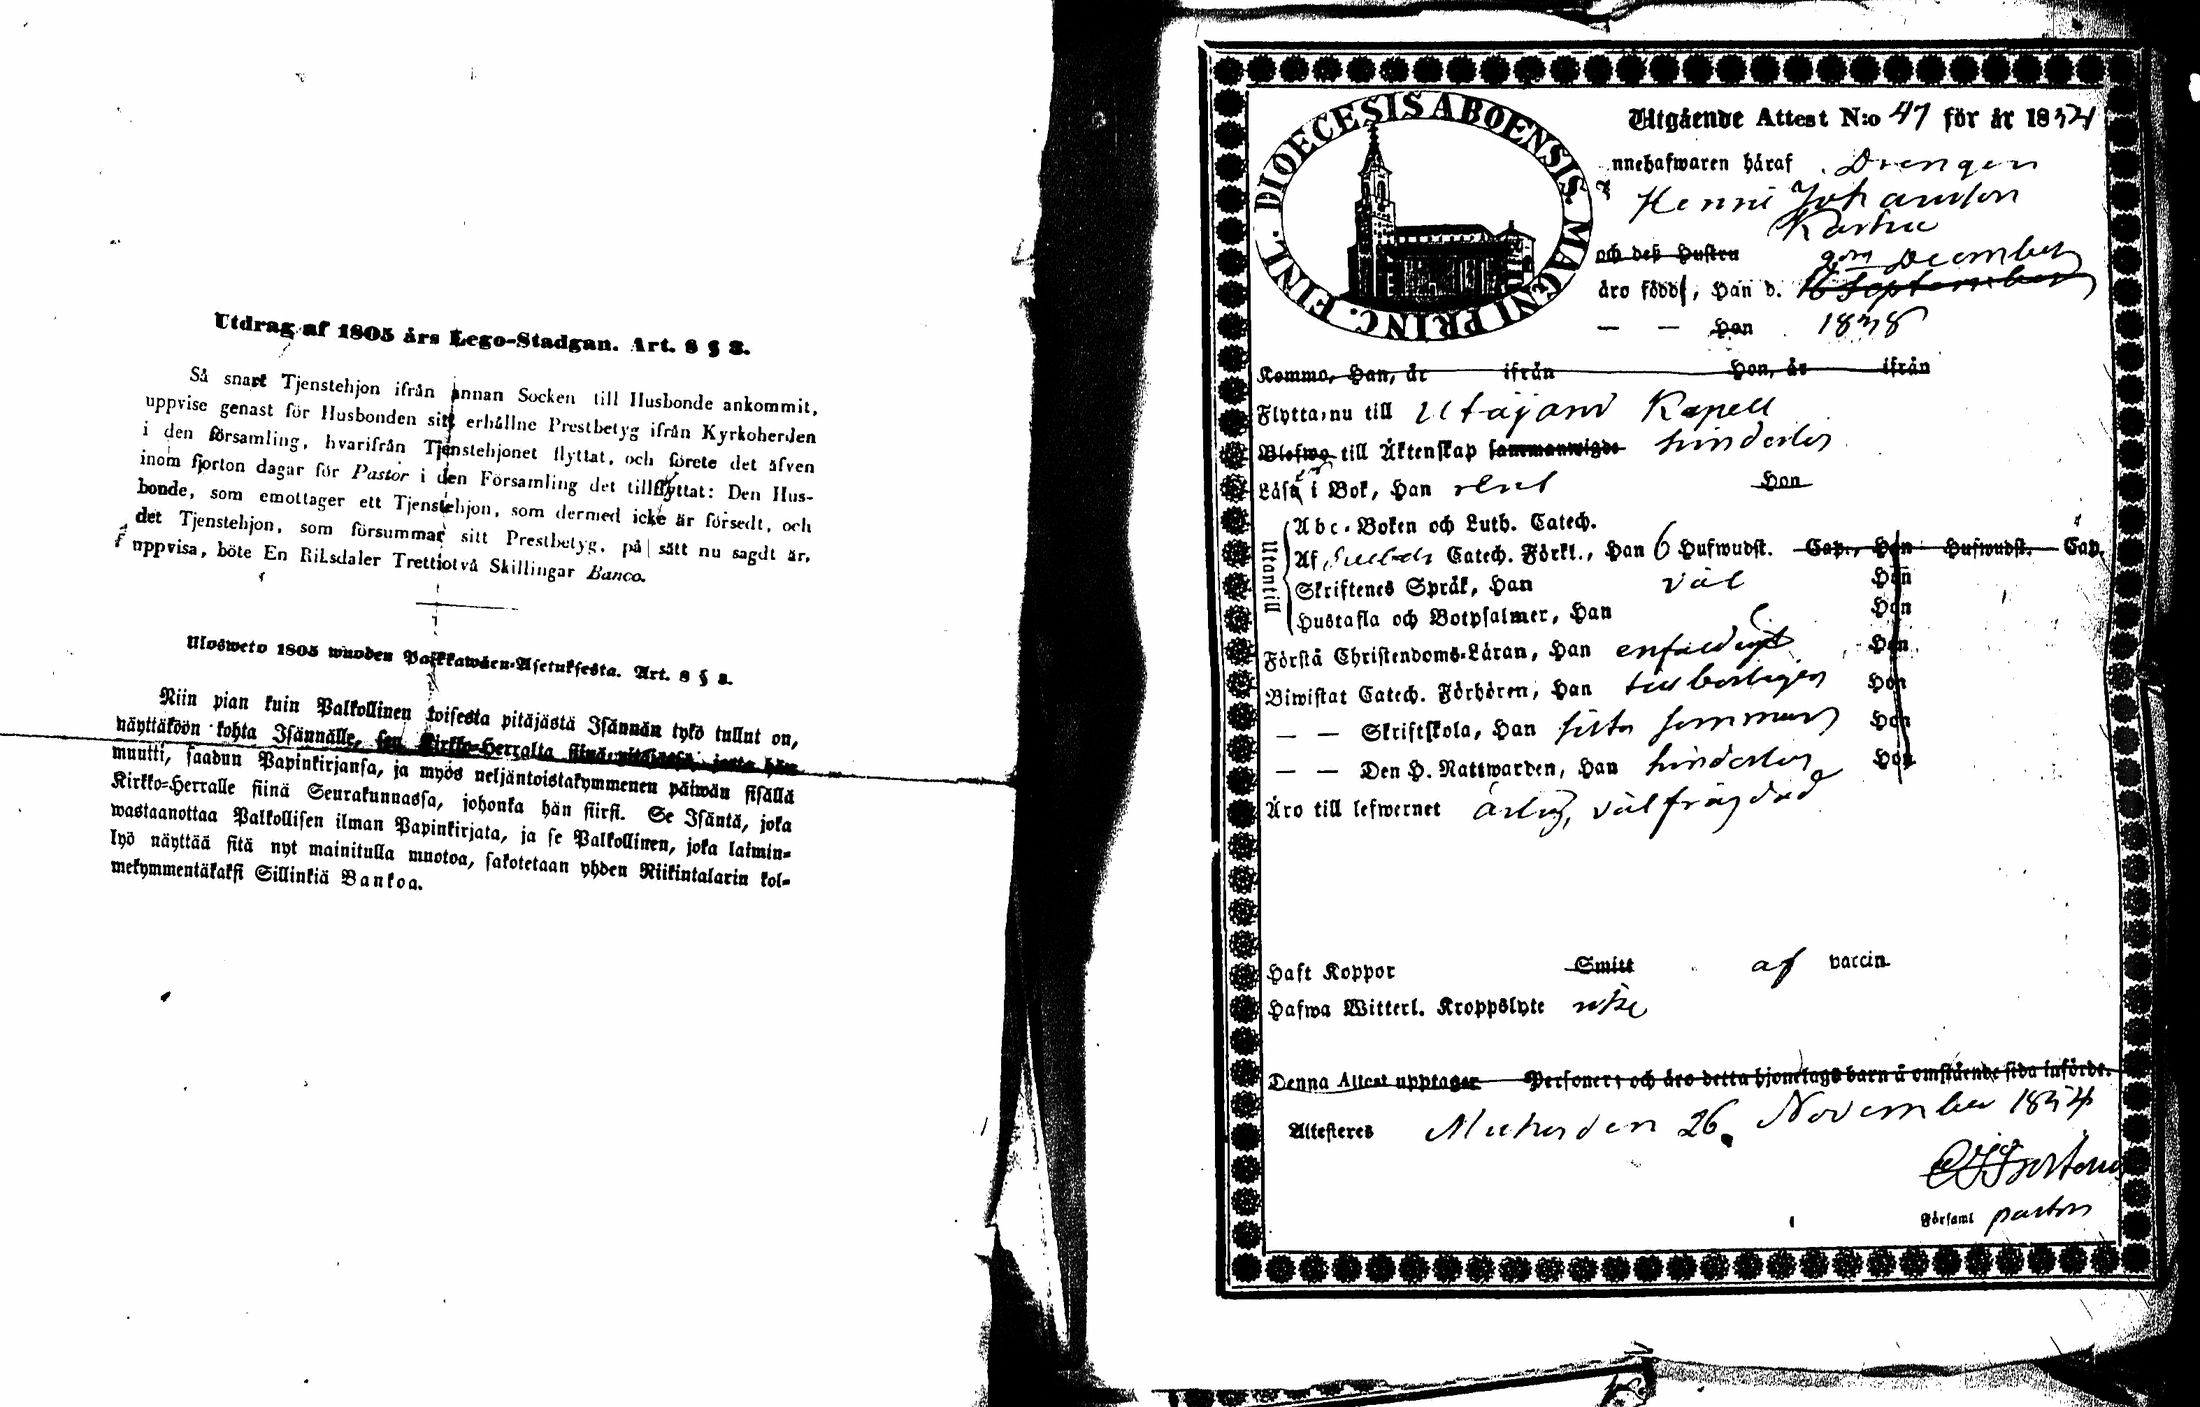 Utdrag af 1805 års Lego-Stadgan. Art. 8 § 3.
Så snart Tjenstehjon ifrån annan Socken till Husbonde ankommit,
uppvise genast för Husbonden sitt erhållne Prestbetyg ifrån Kyrkoherden
i den församling, hvarifrån Tjenstehjonet flyttat, och förete det äfven
inom fjorton dagar för Pastor i den Församling det tillflyttat: Den Hus-
bonde, som emottager ett Tjenstehjon, som dermed icke är försedt, och
det Tjenstehjon, som försummar sitt Prestbetyg, på sätt nu sagdt är,
uppvisa, böte En Riksdaler Trettiotvå Skillingar Banco.
Ulosweto 1805 wuoden Palkkawäen-Asetuksesta. Art. 8 § 3.
Niin pian kuin Palkollinen toisesta pitäjästä Isännän tykö tullut on,
näyttäköön kohta Isännälle, sen Kirkko-Herralta siinä pitäjässä, josta hän
muutti, saadun Papinkirjansa, ja myös neljäntoistakymmenen päiwän sisällä
Kirkko-Herralle siinä Seurakunnassa, johonka hän siirsi. Se Isäntä, joka
wastaanottaa Palkollisen ilman Papinkirjata, ja se Palkollinen, joka laimin-
lyö näyttää sitä nyt mainitulla muotoa, sakotetaan yhden Riikintalarin kol-
mekymmentäkaksi Sillinkiä Bankoa.
DIOECESIS ABOENSIS. MAGNI PRINC. FINL.
Utgående Attest N:o 47 för år 1854
nnehafwaren häraf Drengen
Johansson
och deß Hustru
December
äro födde, Han d. 16 September
— — Hon 1838
Komma, Han, år ifrån Hon, år ifrån
Flytta nu till Kapell
Blefwo till Äktenskap sammanwigde hinderlös
Läsa i Bok, Han rent Hon
Utantill
Abc-Boken och Luth. Catech.
Af Svebeli Catech. Förkl., Han 6 Hufwudst. Cap., Hon Hufwudst. Cap.
Skriftenes Språk, Han väl Hon
Hustafla och Botpsalmer, Han Hon
Förstå Christendoms-Läran, Han enfaldigt Hon
Biwistat Catech. Förhören, Han Hon
— — Skriftskola, Han sista sommar Hon
— — Den H. Nattwarden, Han hinderlös Hon
Äro till lefwernet ärlig, välfrägdad
Haft Koppor Smitt af vaccin
Hafwa Witterl. Kroppslyte icke
Denna Attest upptager Personer; och äro detta hjonelags barn å omstående sida införde.
Attesteres den 26 November 1854
Församl pastor